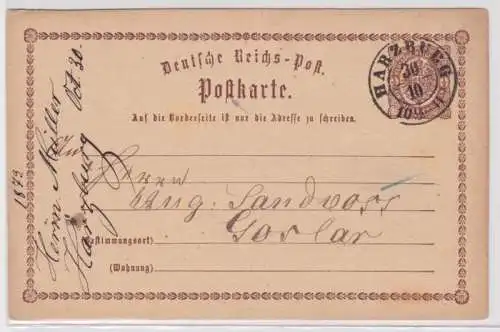 Deutsche Reichs-Post.
Postkarte.
Auf die Vorderseite ist nur die Adresse zu schreiben.
HARZBURG
30
10
Herrn
Aug. Sandvoss
Goslar
(Bestimmungsort)
(Wohnung)
1873
Herm Müller
Oct 30.
Harzburg